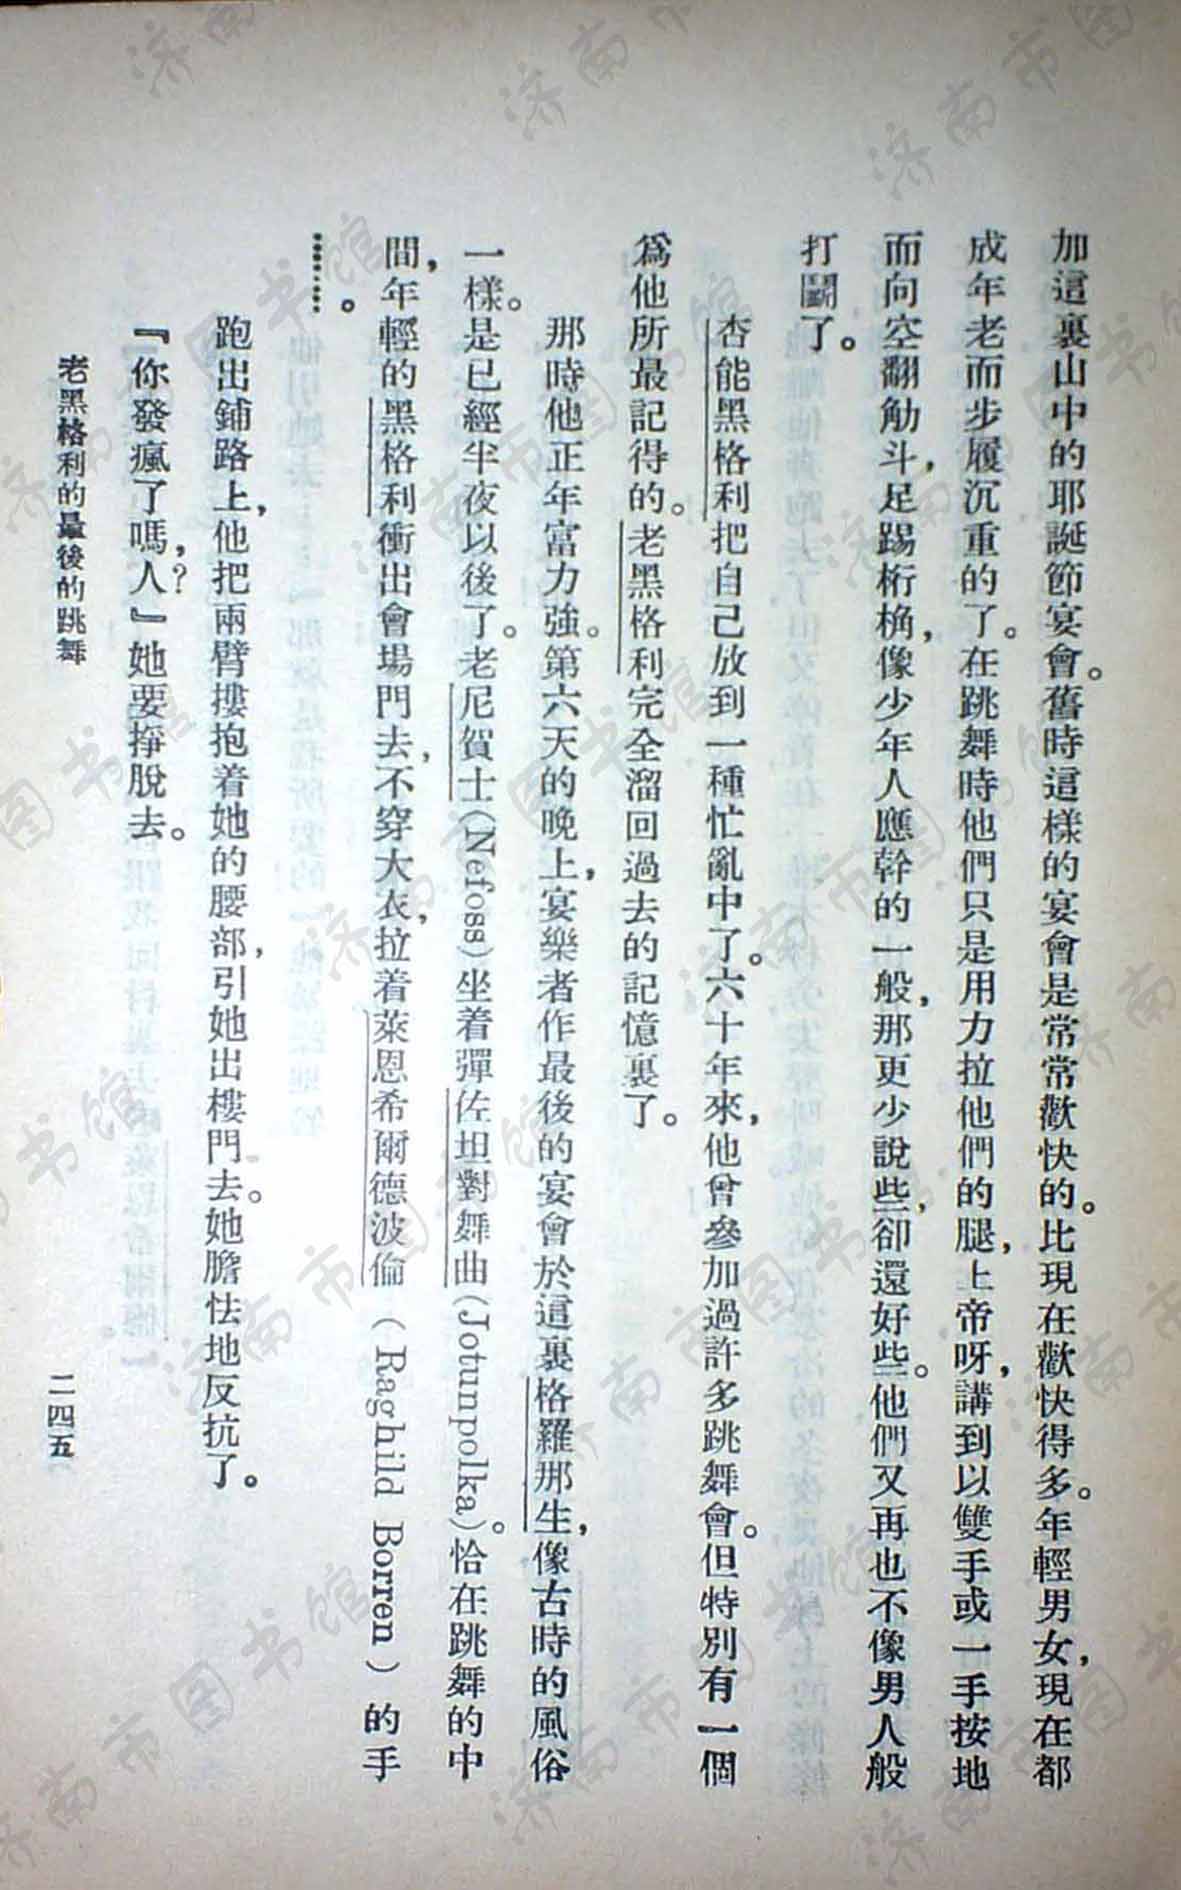 加這裏山中的耶誕節宴會。舊時這樣的宴會是常常歡快的。比現在歡快得多。年輕男女，現在都
成年老而步履沉重的了。在跳舞時他們只是用力拉他們的腿，上帝呀，講到以雙手或一手按地
而向空翻觔斗，足踢桁桷，像少年人應幹的一般，那更少說些，卻還好些。他們又再也不像男人般
打鬭了。
杏能黑格利把自己放到一種忙亂中了。六十年來，他曾參加過許多跳舞會。但特別有一個
爲他所最記得的。老黑格利完全溜回過去的記憶裏了。
那時他正年富力強。第六天的晚上，宴樂者作最後的宴會於這裏格羅那生，像古時的風俗
一樣。是已經半夜以後了。老尼賀士(Nefoss)坐着彈佐坦對舞曲(Jotunpolka)。恰在跳舞的中
間，年輕的黑格利衝出會場門去，不穿大衣，拉着萊恩希爾德波倫（Raghild Borren）的手
……。
跑出鋪路上，他把兩臂摟抱着她的腰部，引她出樓門去。她膽怯地反抗了。
『你發瘋了嗎，人？』她要掙脫去。
老黑格利的最後的跳舞
二四五
济南市图书馆